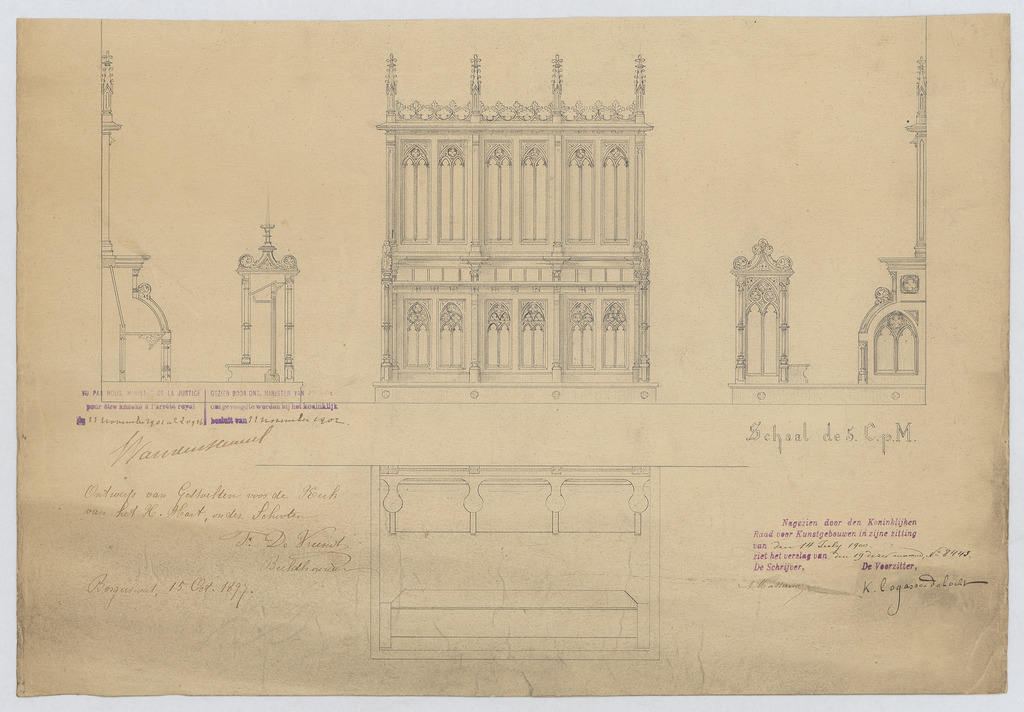 VU PAR NOUS, MINISTRE DE LA JUSTICE
pour être annexé à l'arrêté royal
du 11 novembre 1902
GEZIEN DOOR ONS, MINISTER VAN
om gevoegd te worden bij het koninklijk
besluit van 11 november 1902.
Schaal de 5. C.p.M.
Ontwerp van Gestoelten voor de Kerk
van het H. Hart, onder Schooten
De Vriendt
Beeldhouwer
Borgerhout, 15 Oct. 1897.
Nagezien door den Koninklijken
Raad voor Kunstgebouwen in zijne zitting
van den 14 July 1900
ziet het verslag van den 19 dezer maand, Nr 8443.
De Schrijver, De Voorzitter,